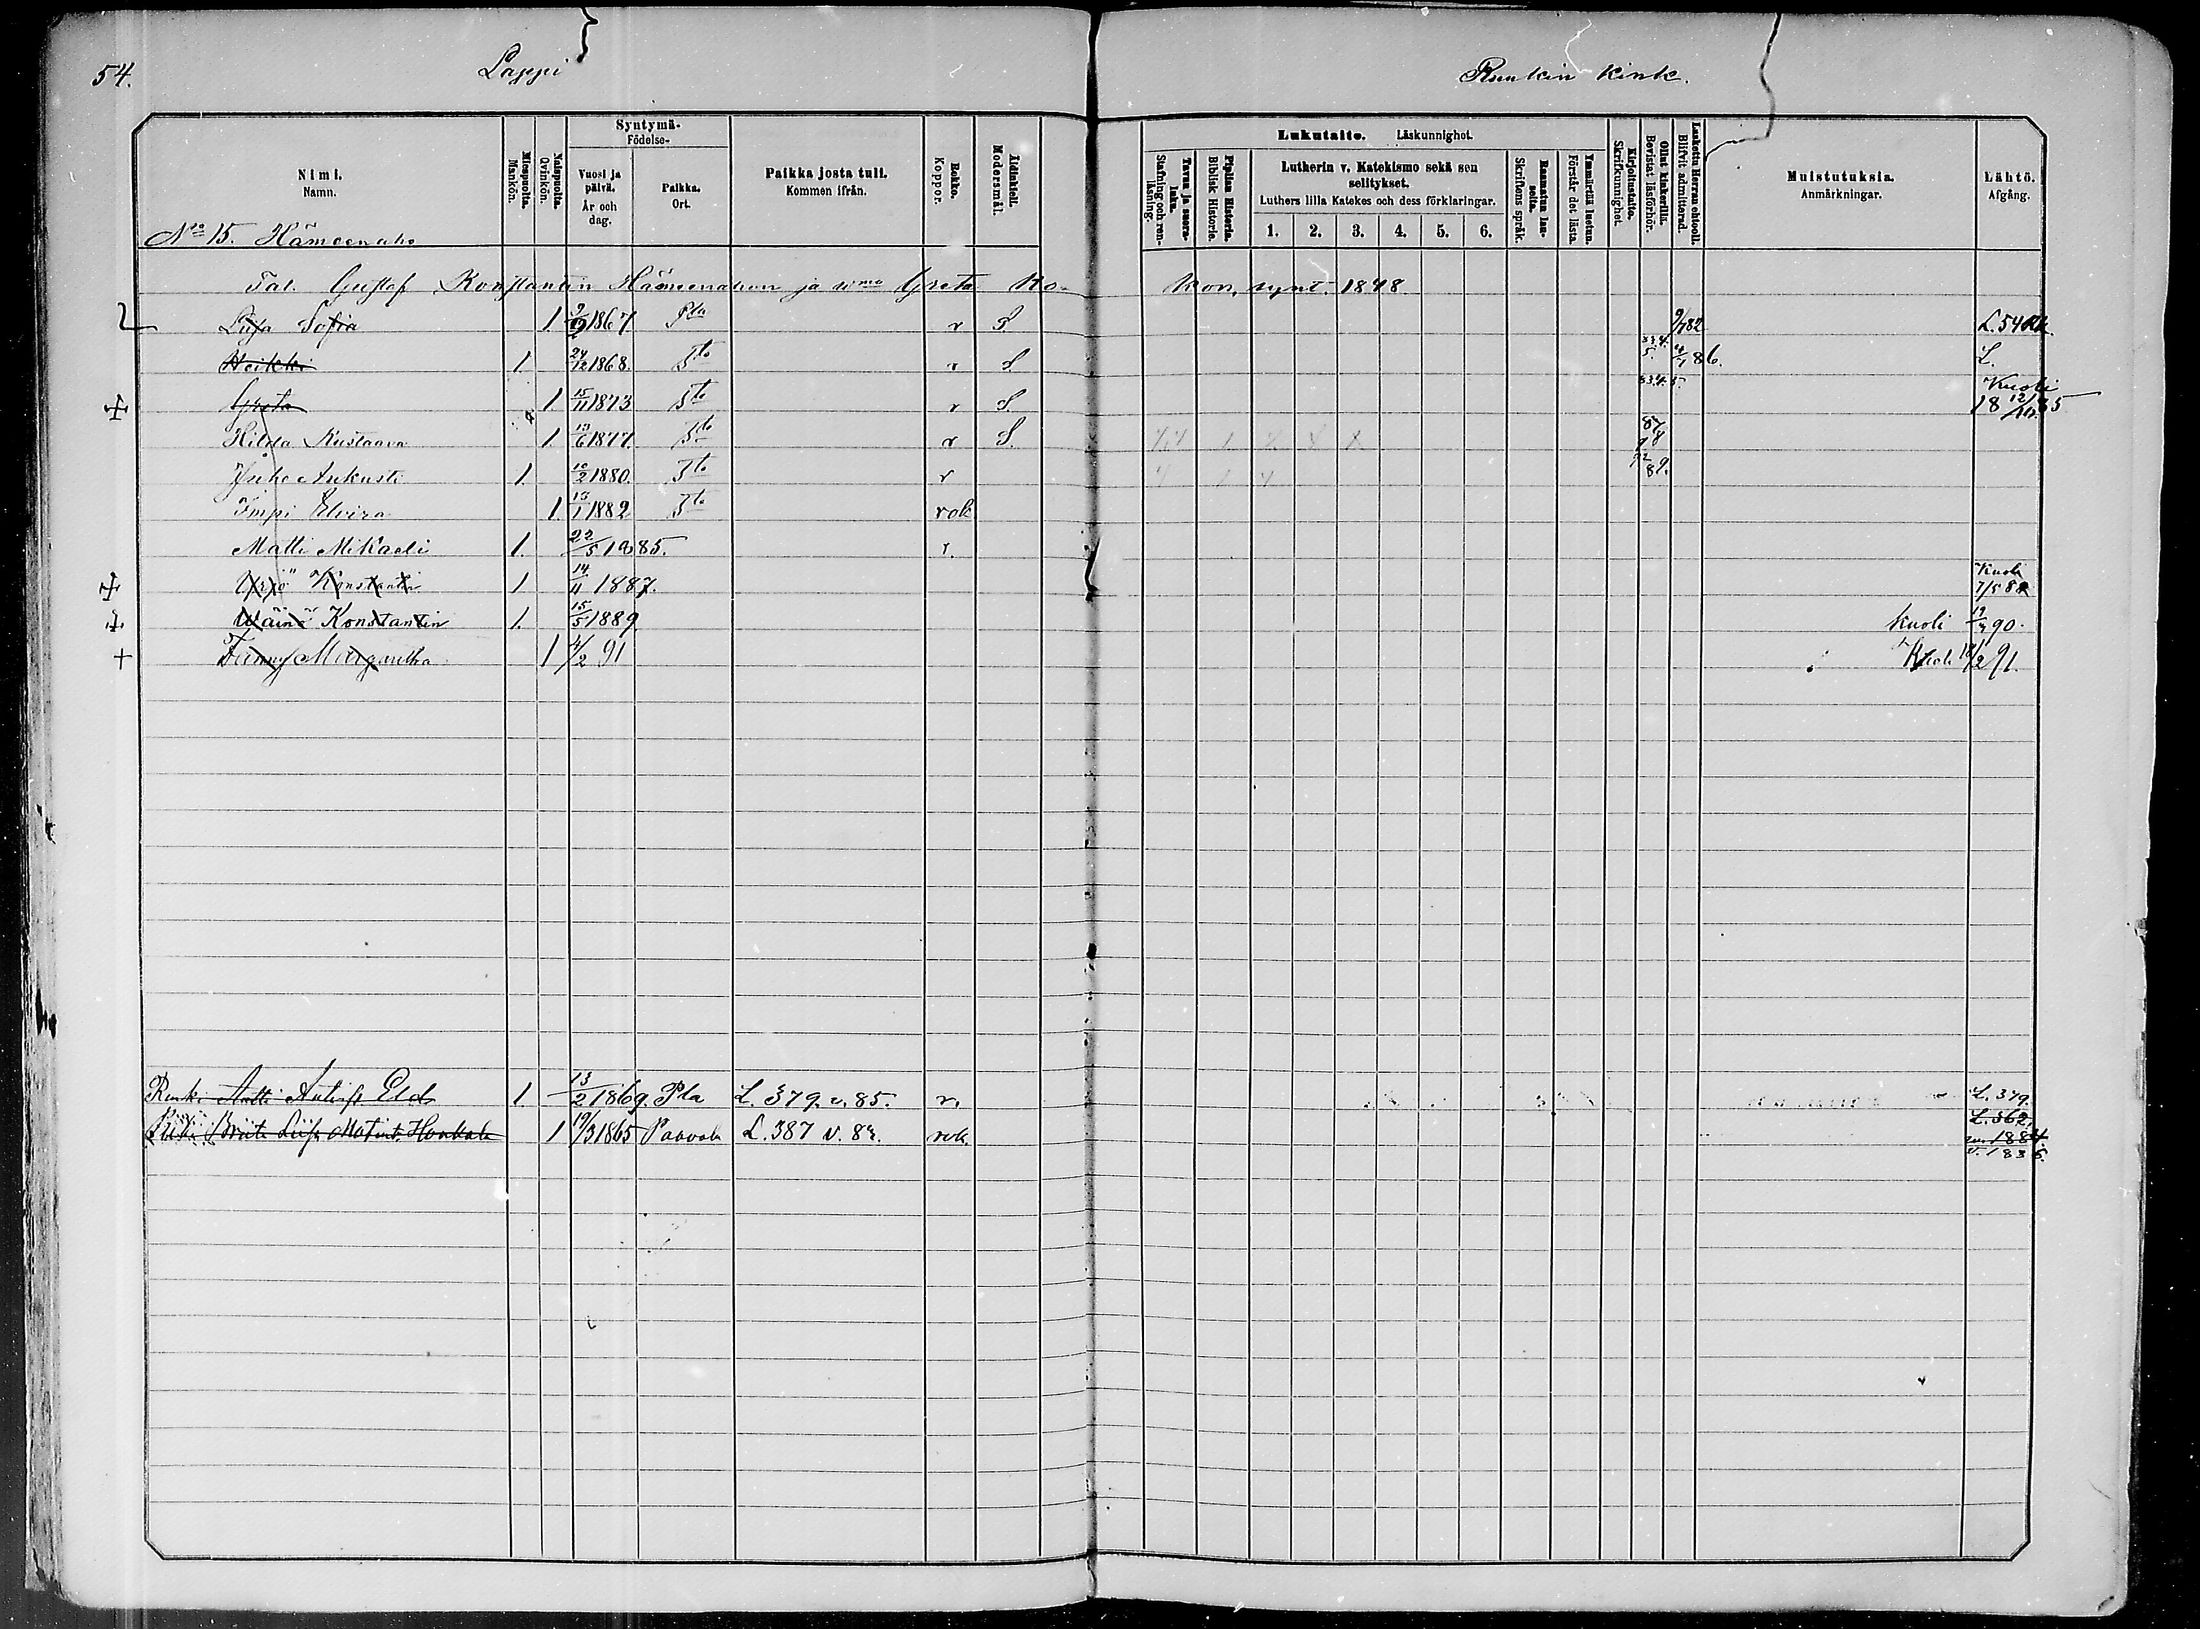 54.
Lappi
Ruukin kink.
Nimi.
Namn.
Miespuolta.
Mankön.
Naispuolta.
Qvinkön.
Syntymä-
Födelse-
Vuosi ja päivä.
År och dag.
Paikka.
Ort.
Paikka josta tuli.
Kommen ifrån.
Rokko.
Koppor.
Äidinkieli.
Modersmål.
Lukutaito. Läskunnighet.
Tavaa ja suora-luku.
Stafning och ren-läsning.
Piplian Historia.
Biblisk Historie.
Lutherin v. Katekismo sekä sen selitykset.
Luthers lilla Katekes och dess förklaringar.
1. 2. 3. 4. 5. 6.
Raamatun lau-seita.
Skriftens språk.
Ymmärtää luetun.
Förstår det lästa.
Kirjoitustaito.
Skrifkunnighet.
Ollut kinkerillä.
Bevistat läsförhör.
Laskettu Herran ehtooll.
Blifvit admitterad.
Muistutuksia.
Anmärkningar.
Lähtö.
Afgång.
No 15. Hämeenaho
Tal. Gustaf Konstantin Hämeenahon ja wmo Greta Ko- kon, synt. 1848
Liisa Sofia 1 1867 Pla r S 82 L. 54
Heikki 1. 24/12 1868. Dto r S 86. L.
Greta 1 15/11 1873 Dto r S. Kuoli 18 12/10 85
Hilda Kustaava 1. 13/6 1877 Dto r S.
Juho Aukusti 1. 10/2 1880. Dto r 89.
Impi Elvira 1. 13/1 1882 Dto rok
Matti Mikaeli 1. 22/5 1885. r.
Yrjö Konstantin 1 14/11 1887. Kuoli 7/5 88
Wäinö Konstantin 1. 15/5 1889 kuoli 90.
Fanny Margaretha 1 4/2 91 Kuoli 18/2 91.
Renki Matti Antinp Elo 1. 13/2 1869. Pla L. 379. v. 85. r. L. 379.
Piika Briita Liisa Matint. Honkala 1 19/3 1865 Paavola L. 387 v. 83. rok L. 362.
1884.
v. 1885.